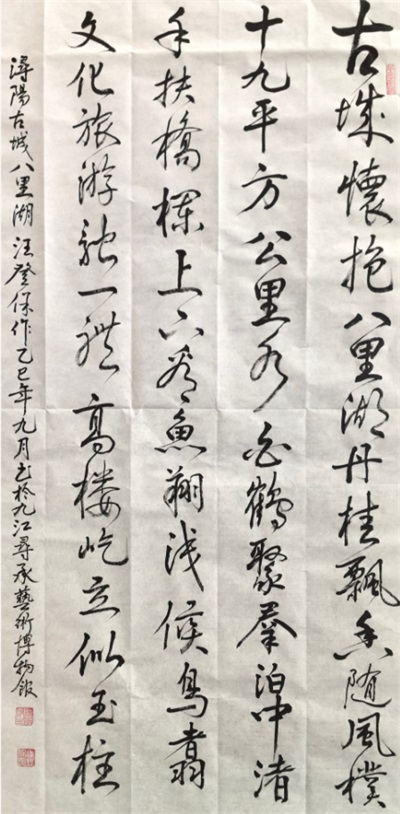 古城懷抱八里湖丹桂飄香随風樸
十九平方公里水白鶴聚羣泊中渚
手扶橋欄上下看魚翔浅候鳥翥
文化旅游融一體高楼屹立似玉柱
潯陽古城八里湖汪登保作乙巳年九月書於九江尋承藝術博物館